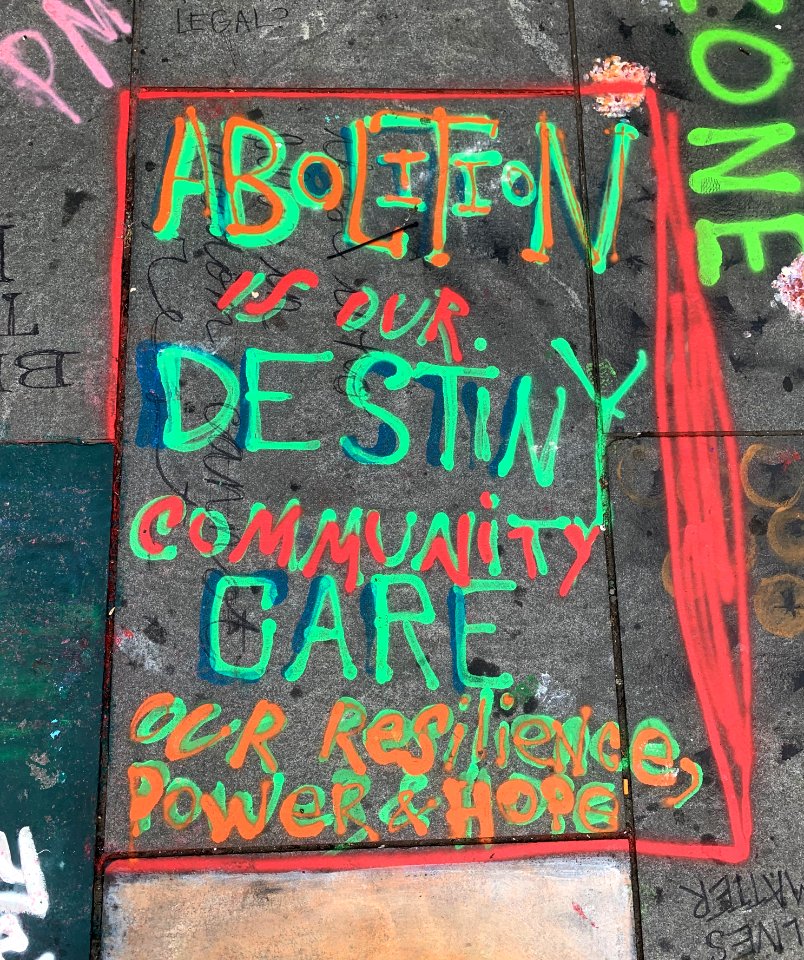 LEGAL?
PM
ONE
ABOLITION
is OUR
DESTiNY
COMMUNiTY
CARE
OUR Resilience,
POWeR & HOPE
LIVES
MATTER